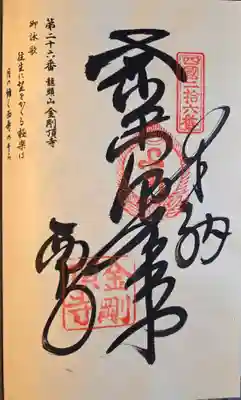 奉納
四國二拾六番
西寺
金剛
頂寺
第二十六番 龍頭山 金剛頂寺
御詠歌
往生に望をかくる極楽は
月の傾く西寺のそら